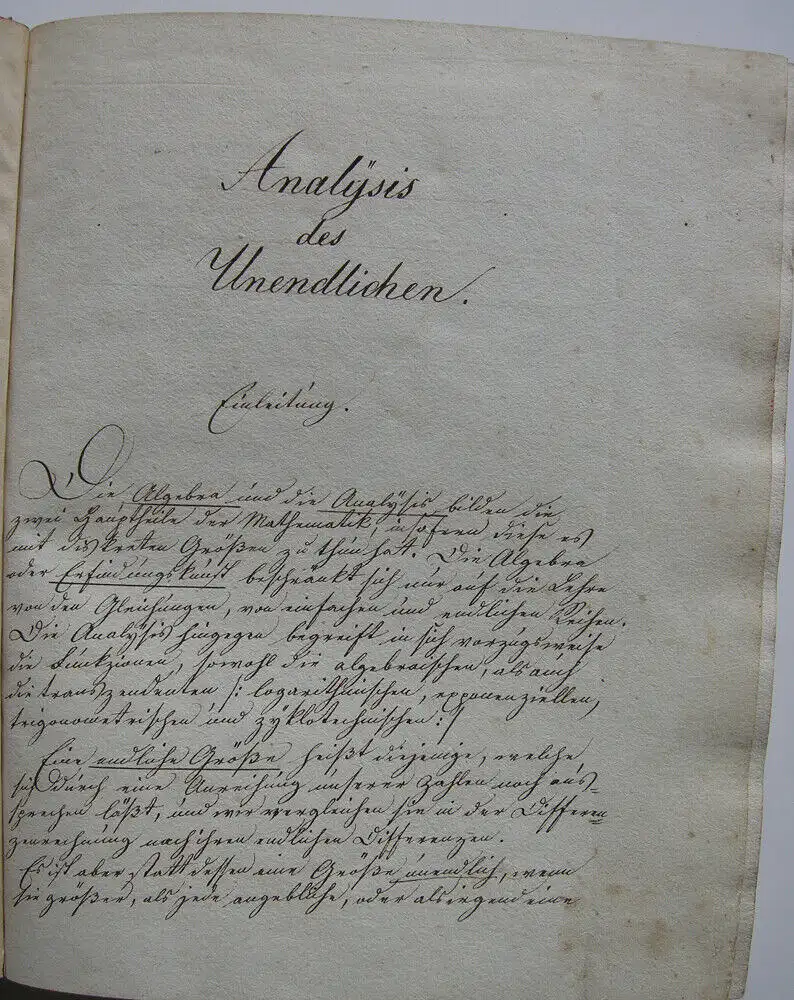 Analÿsis
des
Unendlichen.
Einleitung.
Die Algebra und die Analÿsis bilden die
zwei Haupttheile der Mathematik, insofern diese es
mit diskreten Größen zu thun hat. Die Algebra
oder Erfindungskunst beschränkt sich nur auf die Lehre
von den Gleichungen, von einfachen und endlichen Reihen.
Die Analÿsis hingegen begreift in sich vorzugsweise
die Funkzionen, sowohl die algebraischen, als auch
die transzendenten /: logarithmischen, exponenziellen,
trigonometrischen und zÿklotechnischen :/
Eine endliche Größe heißt diejenige, welche
sich durch eine Anreihung unserer Zahlen noch aus-
sprechen läßt, und wir vergleichen sie in der Differen-
zenrechnung nach ihren endlichen Differenzen.
Es ist aber statt dessen eine Größe unendlich, wenn
sie größer, als jede angebliche, oder als irgend eine